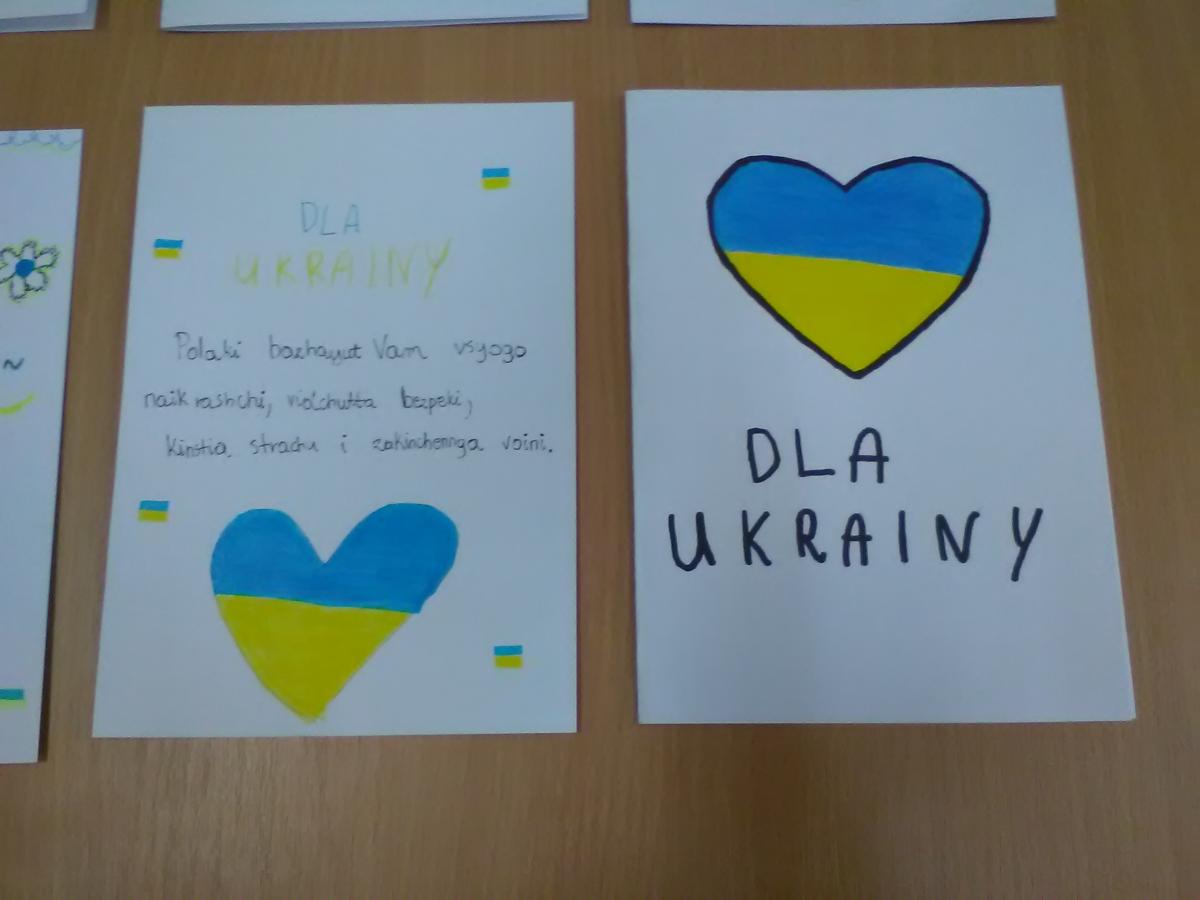 DLA
UKRAINY
Polaki bazhayut Vam vsyogo
naikrashchi, vidchutta bezpeki,
kinstia strachu i zakinchennga voini.
DLA
UKRAINY